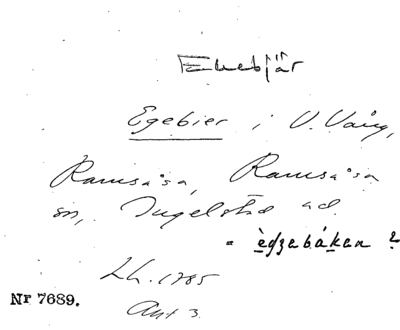 Ekebjär
Egebier i V. Vång,
Ramsåsa, Ramsåsa
sn, Ingelstad hd.
= èdzebáken ?
Lh. 1785
Akt 3.
Nr 7689.